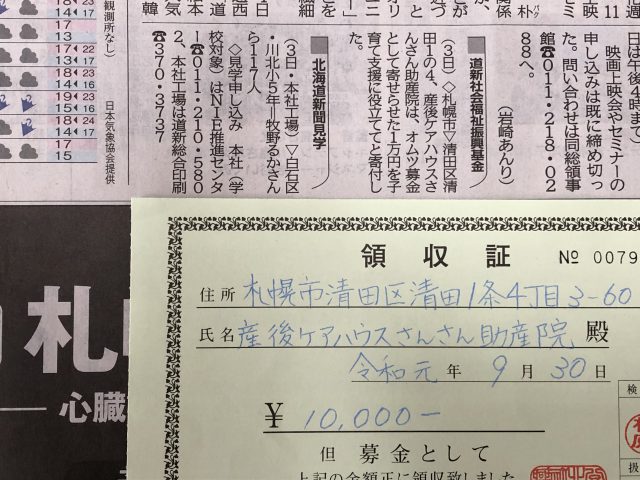 日は午後4時まで）
映画上映会やセミナーの
申し込みは既に締め切っ
た。問い合わせは同総領事
館☎011・218・02
88へ。
（岩崎あんり）
道新社会福祉振興基金
（3日）◇札幌市▽清田区清
田1の4、産後ケアハウスさ
んさん助産院は、オムツ募金
として寄せられた1万円を子
育て支援に役立ててと寄付し
た。
北海道新聞見学
（3日・本社工場）▽白石区
・川北小5年＝牧野るかさん
ら117人
◇見学申し込み　本社（学
校対象）はNIE推進センタ
ー☎011・210・580
2、本社工場は道新総合印刷
☎370・3737
観測所なし）
日本気象協会提供
札
心臓
領収証
№ 0079
住所 札幌市清田区清田1条4丁目3-60
氏名 産後ケアハウスさんさん助産院 殿
令和元年9月30日
¥ 10,000-
但 募金として
上記の金額正に領収致しました
検
扱